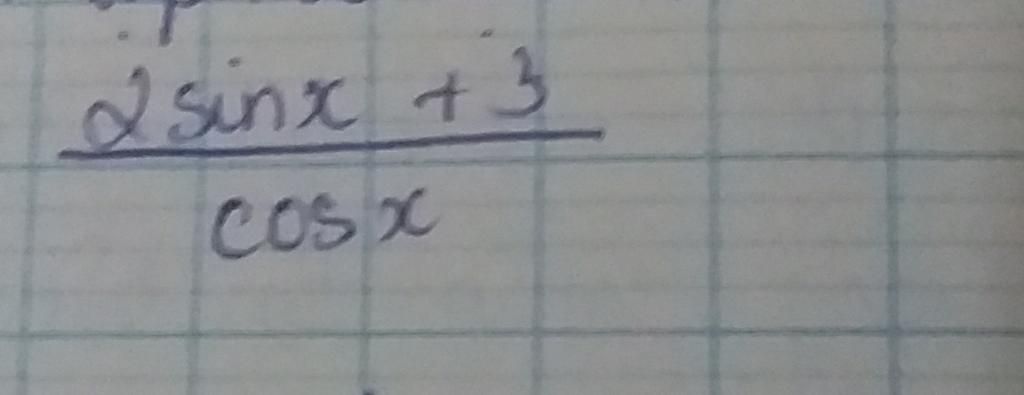 2 sin x + 3
cos x